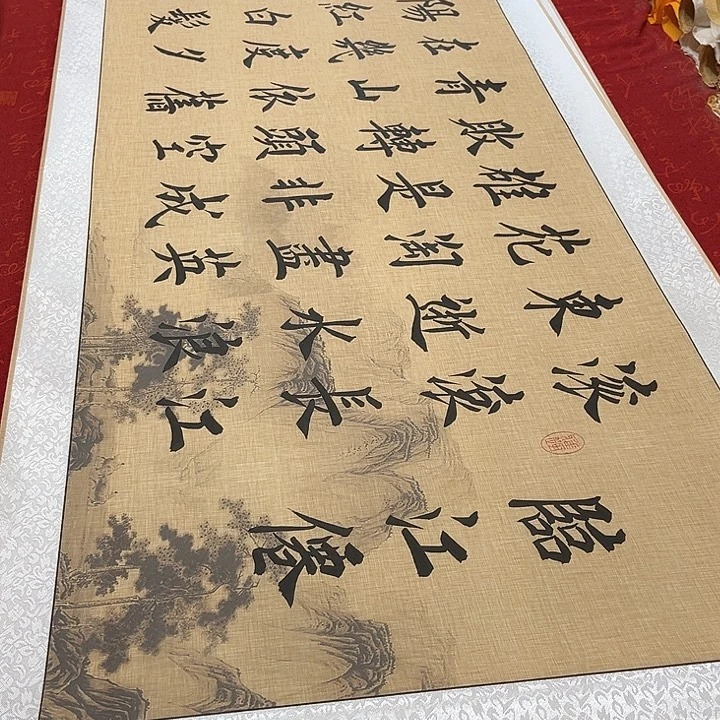 臨江僊
滚滚長江
東逝水浪
花淘盡英
雄是非成
敗轉頭空
青山依舊
在幾度夕
陽紅白髮